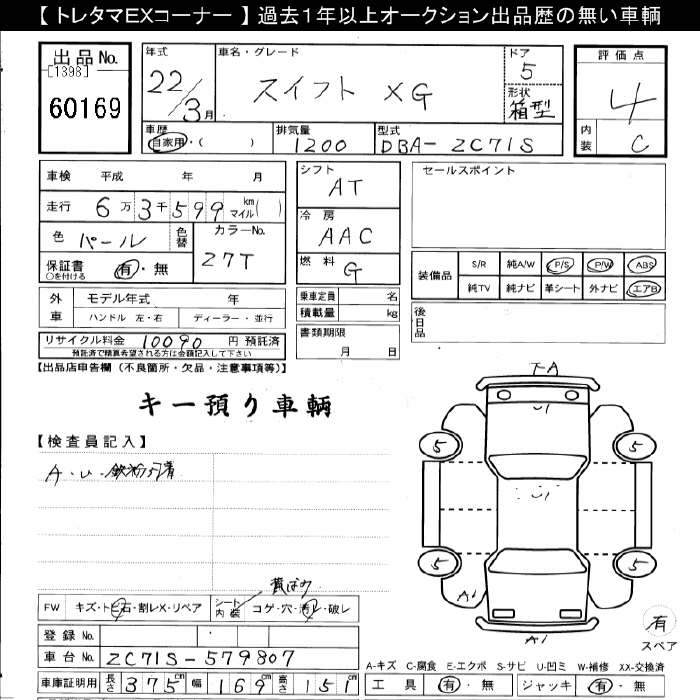 【 トレタマEXコーナー 】 過去１年以上オークション出品歴の無い車輌
出品No.
[1398]
60169
年式
22/3月
車名・グレード
スイフト XG
ドア
5
形状
箱型
評価点
4
内装
C
車歴
自家用・( )
排気量
1200
型式
DBA-ZC71S
車検 平成 年 月
走行 6万3千599 km マイル( )
色 パール
色替
カラーNo.
Z7T
保証書
○を付ける
有・無
シフト
AT
冷房
AAC
燃料
G
セールスポイント
装備品
S/R 純A/W P/S P/W ABS
純TV 純ナビ 革シート 外ナビ エアB
外車
モデル年式 年
ハンドル 左・右 ディーラー・並行
乗車定員 名
積載量 kg
後日品
リサイクル料金 10090 円 預託済
預託済で精算希望される方は金額記入して下さい
書類期限
月 日
【出品店申告欄（不良箇所・欠品・注意事項等）】
キー預り車輌
【検査員記入】
A・U・
FA
U1
U1
5
5
5
5
A1
A1
有
スペア
黄ばみ
FW キズ・トビ石・割レX・リペア
シート内装 コゲ・穴・汚レ・破レ
登録 No.
車台 No. ZC71S-579807
A-キズ C-腐食 E-エクボ S-サビ U-凹ミ W-補修 XX-交換済
車庫証明用 長さ 375cm 幅 169cm 高さ 151cm
工具 有・無 ジャッキ 有・無